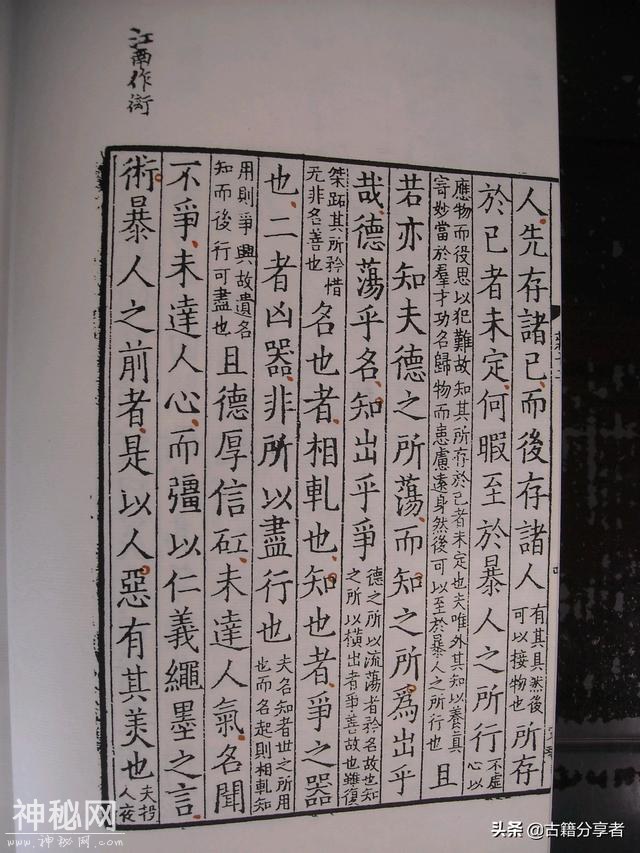 人先存諸己而後存諸人有其具然後可以接物也所存
於己者未定何暇至於暴人之所行不虛心以
應物而役思以犯難故知其所存於己者未定也夫唯外其知以養真寄妙當於羣才功名歸物而患慮遠身然後可以至於暴人之所行也且
若亦知夫德之所蕩而知之所為出乎
哉德蕩乎名知出乎爭德之所以流蕩者矜名故也知之所以橫出者爭善故也雖復
桀跖其所矜惜无非名善也名也者相軋也知也者爭之器
也二者凶器非所以盡行也夫名知者世之所用也而名起則相軋知
用則爭興故遺名知而後行可盡也且德厚信矼未達人氣名聞
不爭未達人心而彊以仁義繩墨之言
術暴人之前者是以人惡有其美也夫投人夜
江南作衒
神秘网
www.神秘网.com
头条 @古籍分享者